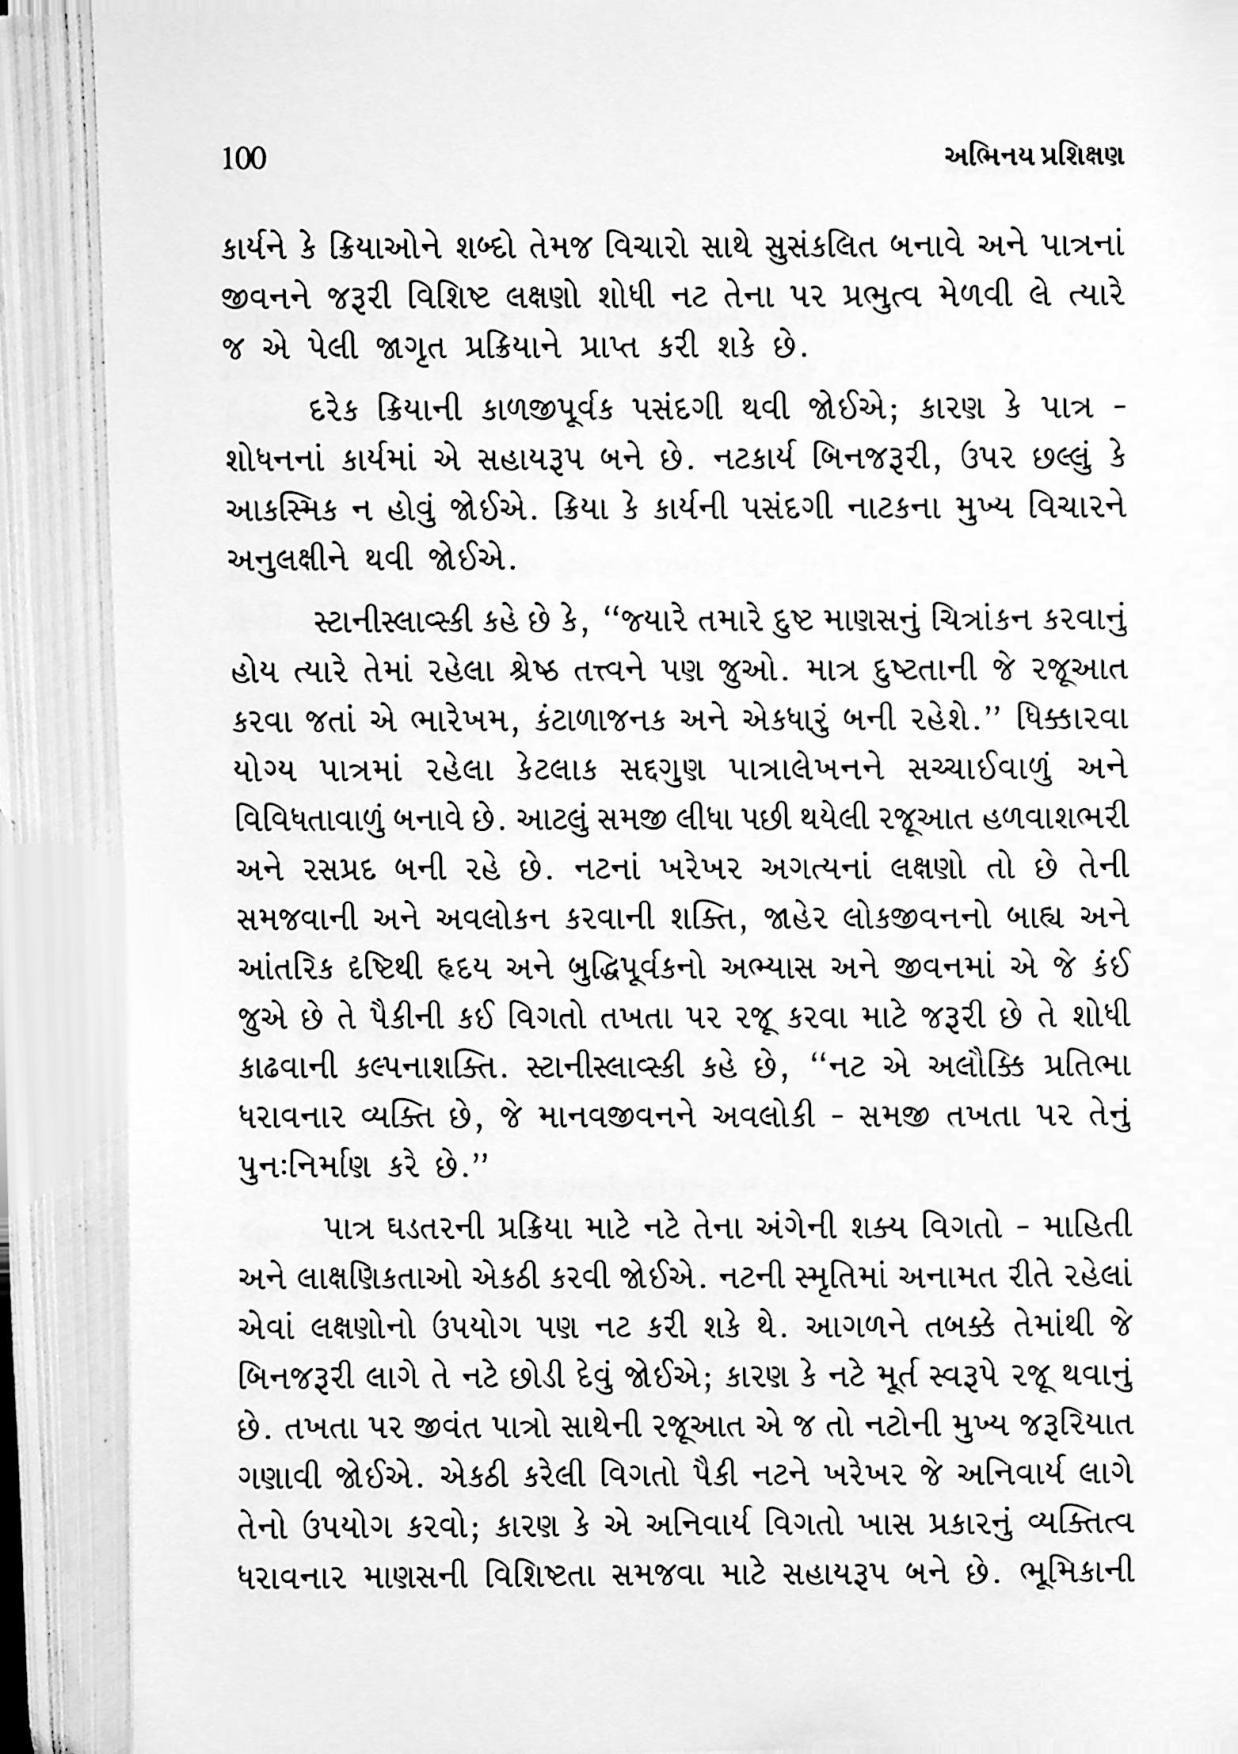 100
અભિનય પ્રશિક્ષણ
કાર્યને કે ક્રિયાઓને શબ્દો તેમજ વિચારો સાથે સુસંકલિત બનાવે અને પાત્રનાં
જીવનને જરૂરી વિશિષ્ટ લક્ષણો શોધી નટ તેના પર પ્રભુત્વ મેળવી લે ત્યારે
જ એ પેલી જાગૃત પ્રક્રિયાને પ્રાપ્ત કરી શકે છે.
દરેક ક્રિયાની કાળજીપૂર્વક પસંદગી થવી જોઈએ; કારણ કે પાત્ર -
શોધનનાં કાર્યમાં એ સહાયરૂપ બને છે. નટકાર્ય બિનજરૂરી, ઉપર છલ્લું કે
આકસ્મિક ન હોવું જોઈએ. ક્રિયા કે કાર્યની પસંદગી નાટકના મુખ્ય વિચારને
અનુલક્ષીને થવી જોઈએ.
સ્ટાનીસ્લાવ્સ્કી કહે છે કે, “જ્યારે તમારે દુષ્ટ માણસનું ચિત્રાંકન કરવાનું
હોય ત્યારે તેમાં રહેલા શ્રેષ્ઠ તત્ત્વને પણ જુઓ. માત્ર દુષ્ટતાની જે રજૂઆત
કરવા જતાં એ ભારેખમ, કંટાળાજનક અને એકધારું બની રહેશે.” ધિક્કારવા
યોગ્ય પાત્રમાં રહેલા કેટલાક સદ્દગુણ પાત્રાલેખનને સચ્ચાઈવાળું અને
વિવિધતાવાળું બનાવે છે. આટલું સમજી લીધા પછી થયેલી રજૂઆત હળવાશભરી
અને રસપ્રદ બની રહે છે. નટનાં ખરેખર અગત્યનાં લક્ષણો તો છે તેની
સમજવાની અને અવલોકન કરવાની શક્તિ, જાહેર લોકજીવનનો બાહ્ય અને
આંતરિક દૃષ્ટિથી હૃદય અને બુદ્ધિપૂર્વકનો અભ્યાસ અને જીવનમાં એ જે કંઈ
જુએ છે તે પૈકીની કઈ વિગતો તખતા પર રજૂ કરવા માટે જરૂરી છે તે શોધી
કાઢવાની કલ્પનાશક્તિ. સ્ટાનીસ્લાવ્સ્કી કહે છે, “નટ એ અલૌક્કિ પ્રતિભા
ધરાવનાર વ્યક્તિ છે, જે માનવજીવનને અવલોકી - સમજી તખતા પર તેનું
પુનઃનિર્માણ કરે છે.”
પાત્ર ઘડતરની પ્રક્રિયા માટે નટે તેના અંગેની શક્ય વિગતો - માહિતી
અને લાક્ષણિકતાઓ એકઠી કરવી જોઈએ. નટની સ્મૃતિમાં અનામત રીતે રહેલાં
એવાં લક્ષણોનો ઉપયોગ પણ નટ કરી શકે થે. આગળને તબક્કે તેમાંથી જે
બિનજરૂરી લાગે તે નટે છોડી દેવું જોઈએ; કારણ કે નટે મૂર્ત સ્વરૂપે રજૂ થવાનું
છે. તખતા પર જીવંત પાત્રો સાથેની રજૂઆત એ જ તો નટોની મુખ્ય જરૂરિયાત
ગણાવી જોઈએ. એકઠી કરેલી વિગતો પૈકી નટને ખરેખર જે અનિવાર્ય લાગે
તેનો ઉપયોગ કરવો; કારણ કે એ અનિવાર્ય વિગતો ખાસ પ્રકારનું વ્યક્તિત્વ
ધરાવનાર માણસની વિશિષ્ટતા સમજવા માટે સહાયરૂપ બને છે. ભૂમિકાની